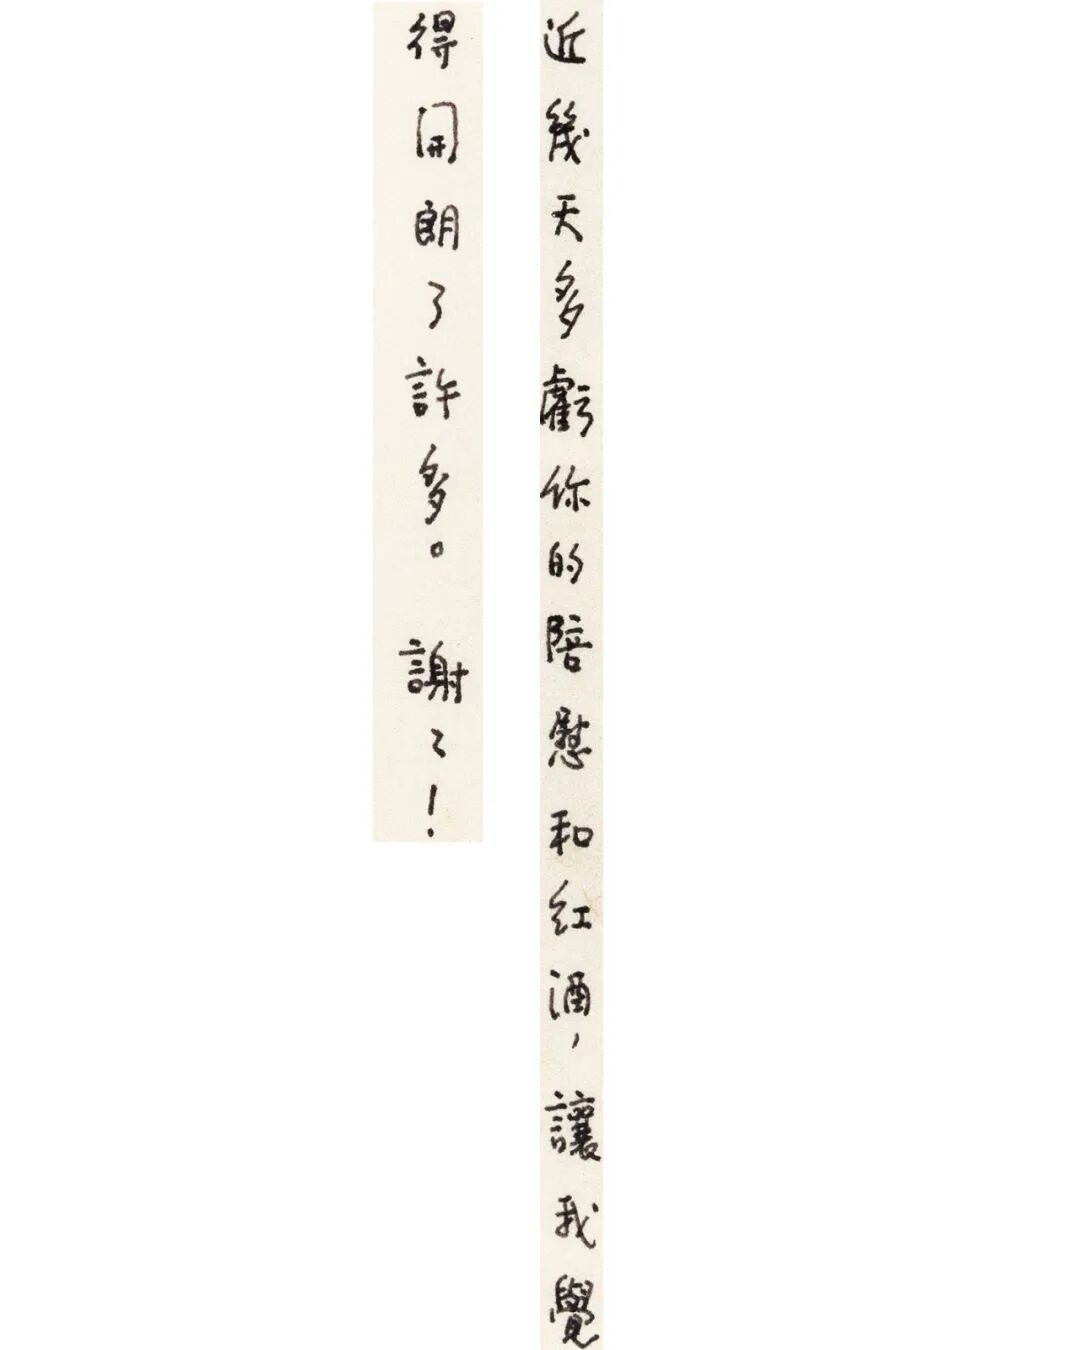 近幾天多虧你的陪慰和紅酒，讓我覺
得開朗了許多。謝〻！